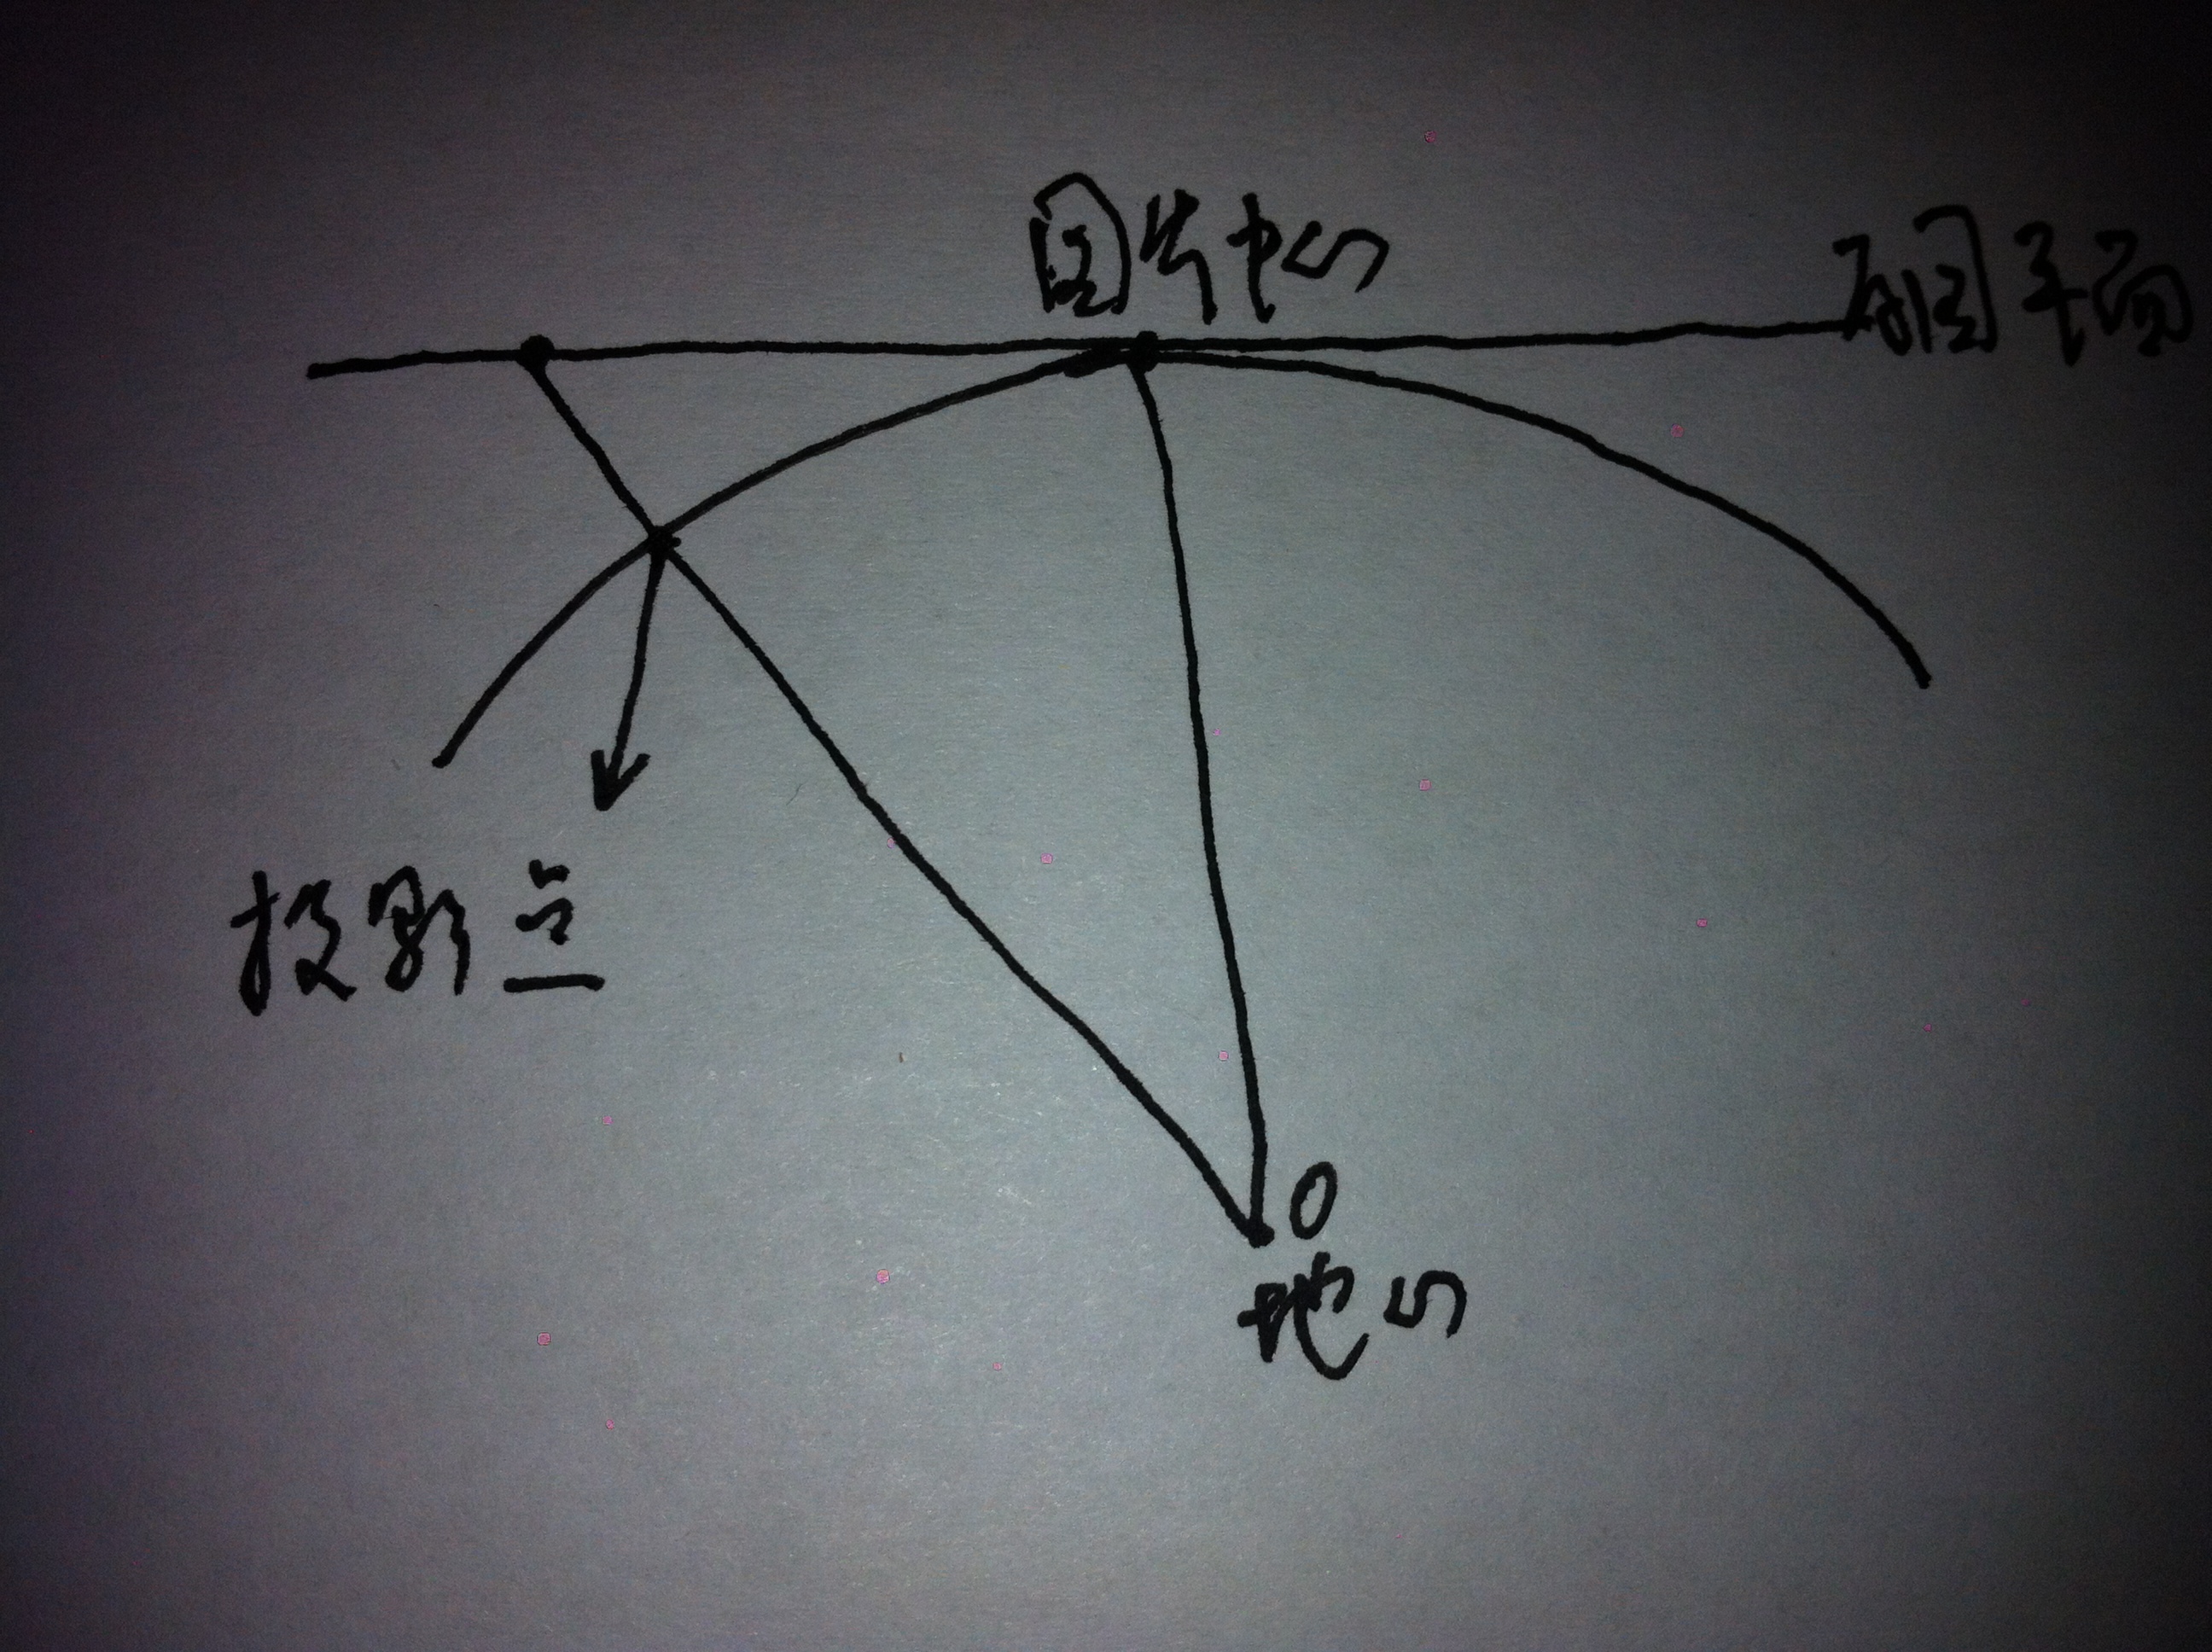 图片中心
画图平面
投影点
O
地心